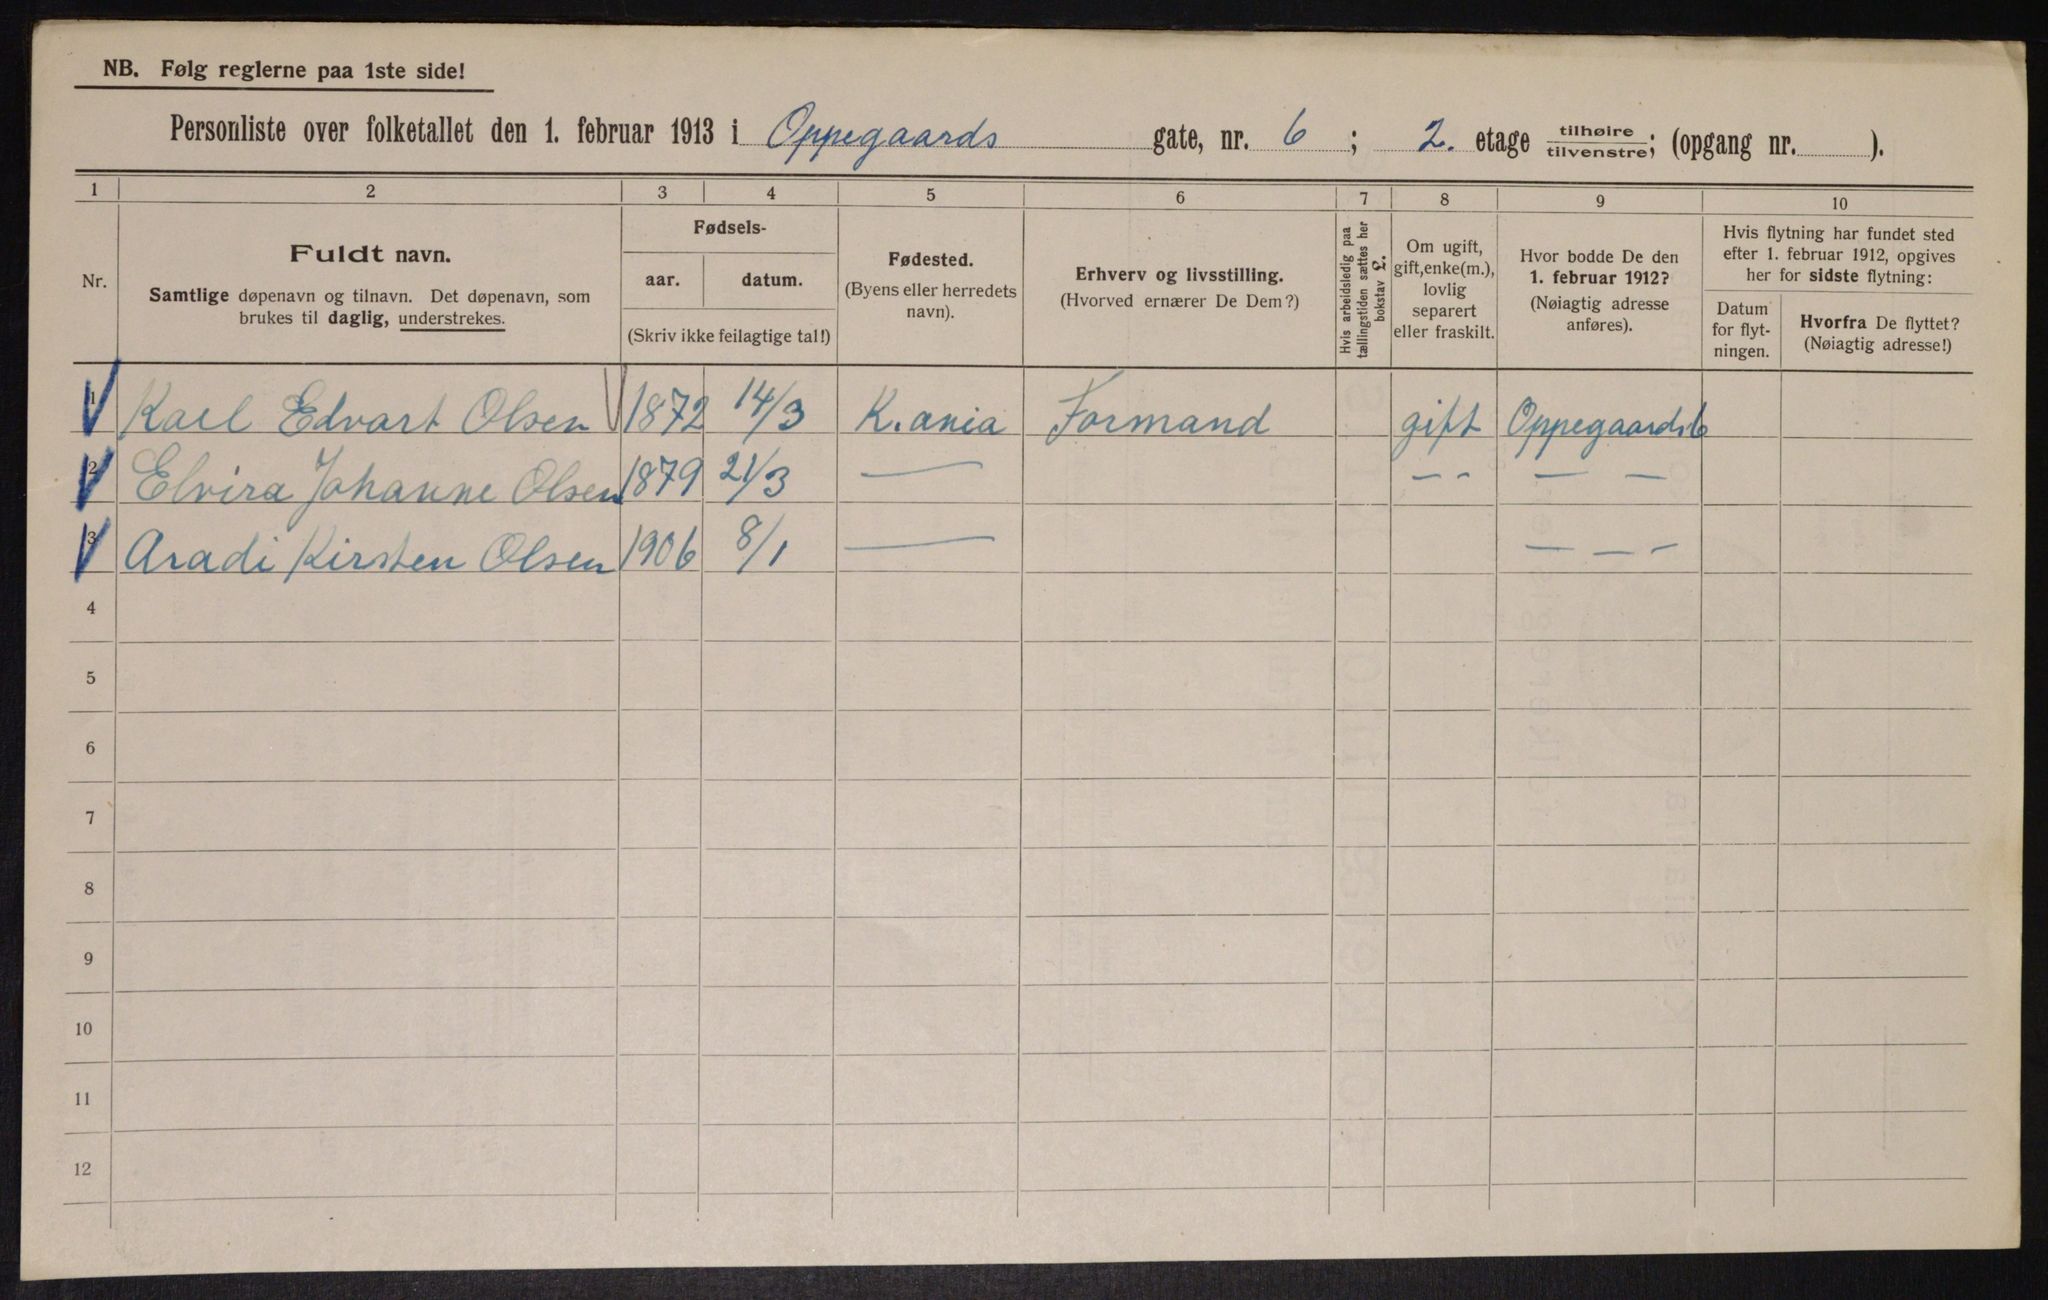 NB. Følg reglerne paa 1ste side!
Personliste over folketallet den 1. februar 1913 i Oppegaards gate, nr. 6 ; 2. etage tilhøire/tilvenstre; (opgang nr. ).
1 2 3 4 5 6 7 8 9 10
Nr.
Fuldt navn.
Samtlige døpenavn og tilnavn. Det døpenavn, som
brukes til daglig, understrekes.
Fødsels-
aar. datum.
(Skriv ikke feilagtige tal!)
Fødested.
(Byens eller herredets
navn).
Erhverv og livsstilling.
(Hvorved ernærer De Dem?)
Hvis arbeidsledig paa
tællingstiden sættes her
bokstav L.
Om ugift,
gift, enke(m.),
lovlig
separert
eller fraskilt.
Hvor bodde De den
1. februar 1912?
(Nøiagtig adresse
anføres).
Hvis flytning har fundet sted
efter 1. februar 1912, opgives
her for sidste flytning:
Datum
for flyt-
ningen.
Hvorfra De flyttet?
(Nøiagtig adresse!)
1 Karl Edvart Olsen 1872 14/3 K.ania Formand gift Oppegaards 6
2 Elvira Johanne Olsen 1879 21/3 — - - — —
3 Aradi Kirsten Olsen 1906 8/1 — — — -
4
5
6
7
8
9
10
11
12